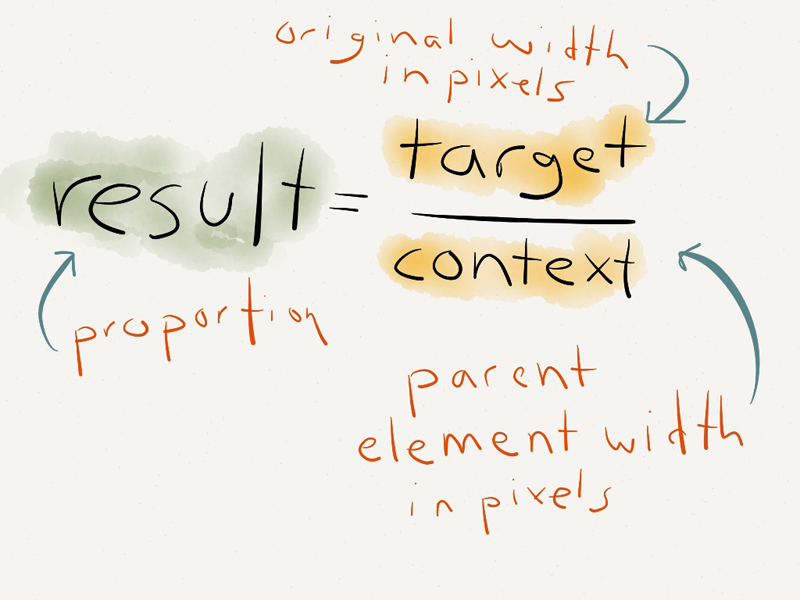 original width
in pixels
target
result =
context
proportion
parent
element width
in pixels